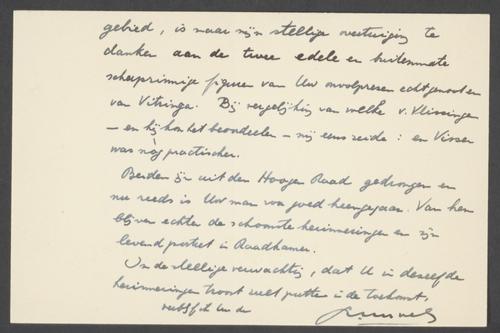 gebied, is naar mijn stellige overtuiging te
danken aan de twee edele en buitenmate
scherpzinnige figuren van Uw onvolprezen echtgenoot en
van Vitringa. Bij vergelijking van welke v. Vlissingen
– en hij kon het beoordeelen – mij eens zeide: en Visser
was nòg practischer.
Beiden zijn uit den Hoogen Raad gedrongen en
nu reeds is Uw man voor goed heengegaan. Van hen
blijven echter de schoonste herinneringen en zijn
levend portret in Raadkamer.
In de stellige verwachting, dat U in dezelfde
herinneringen troost zult putten in de toekomst,